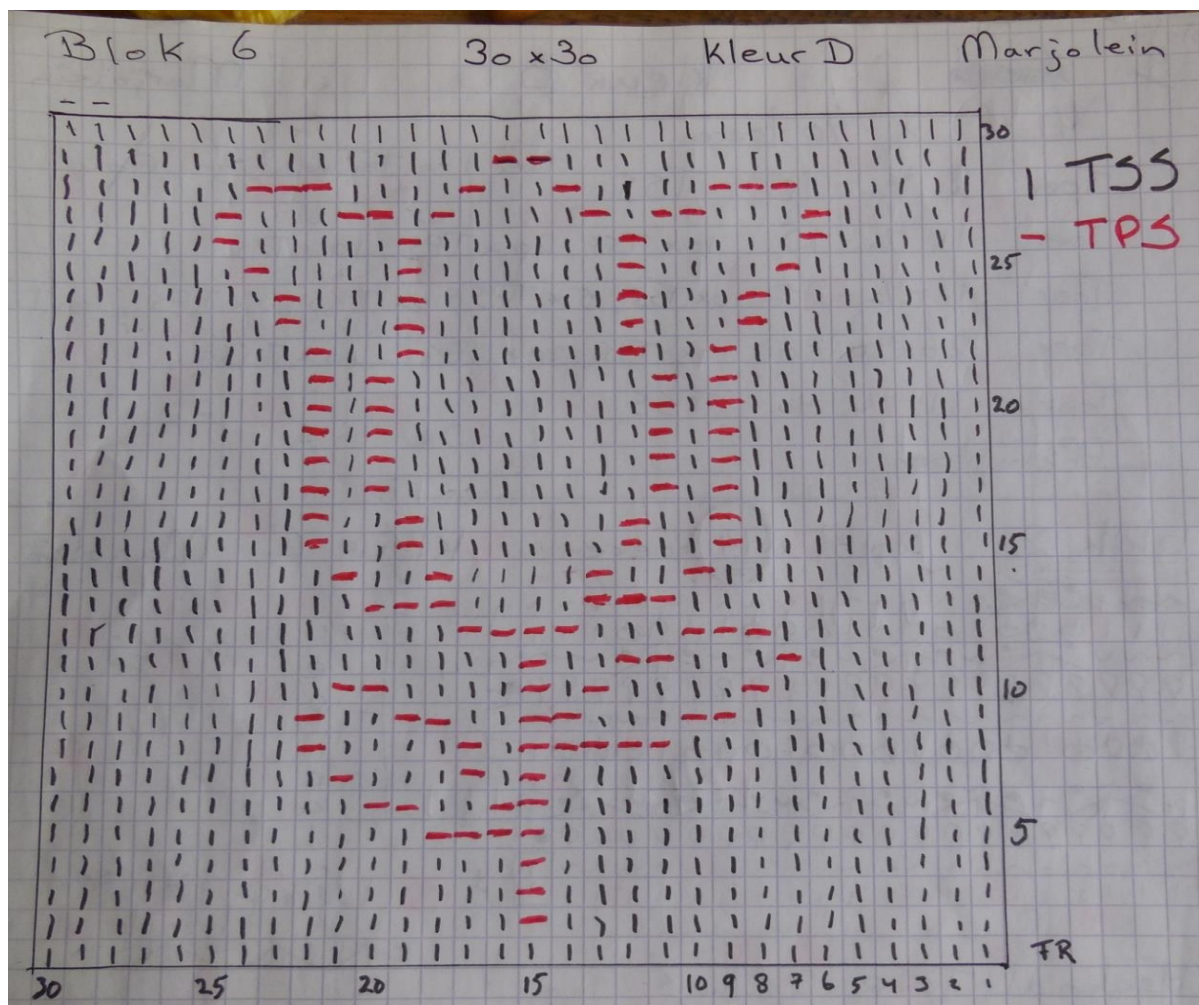 Blok 6 30 x 30 Kleur D Marjolein
30
| TSS
- TPS
25
20
15
10
5
FR
30 25 20 15 10 9 8 7 6 5 4 3 2 1